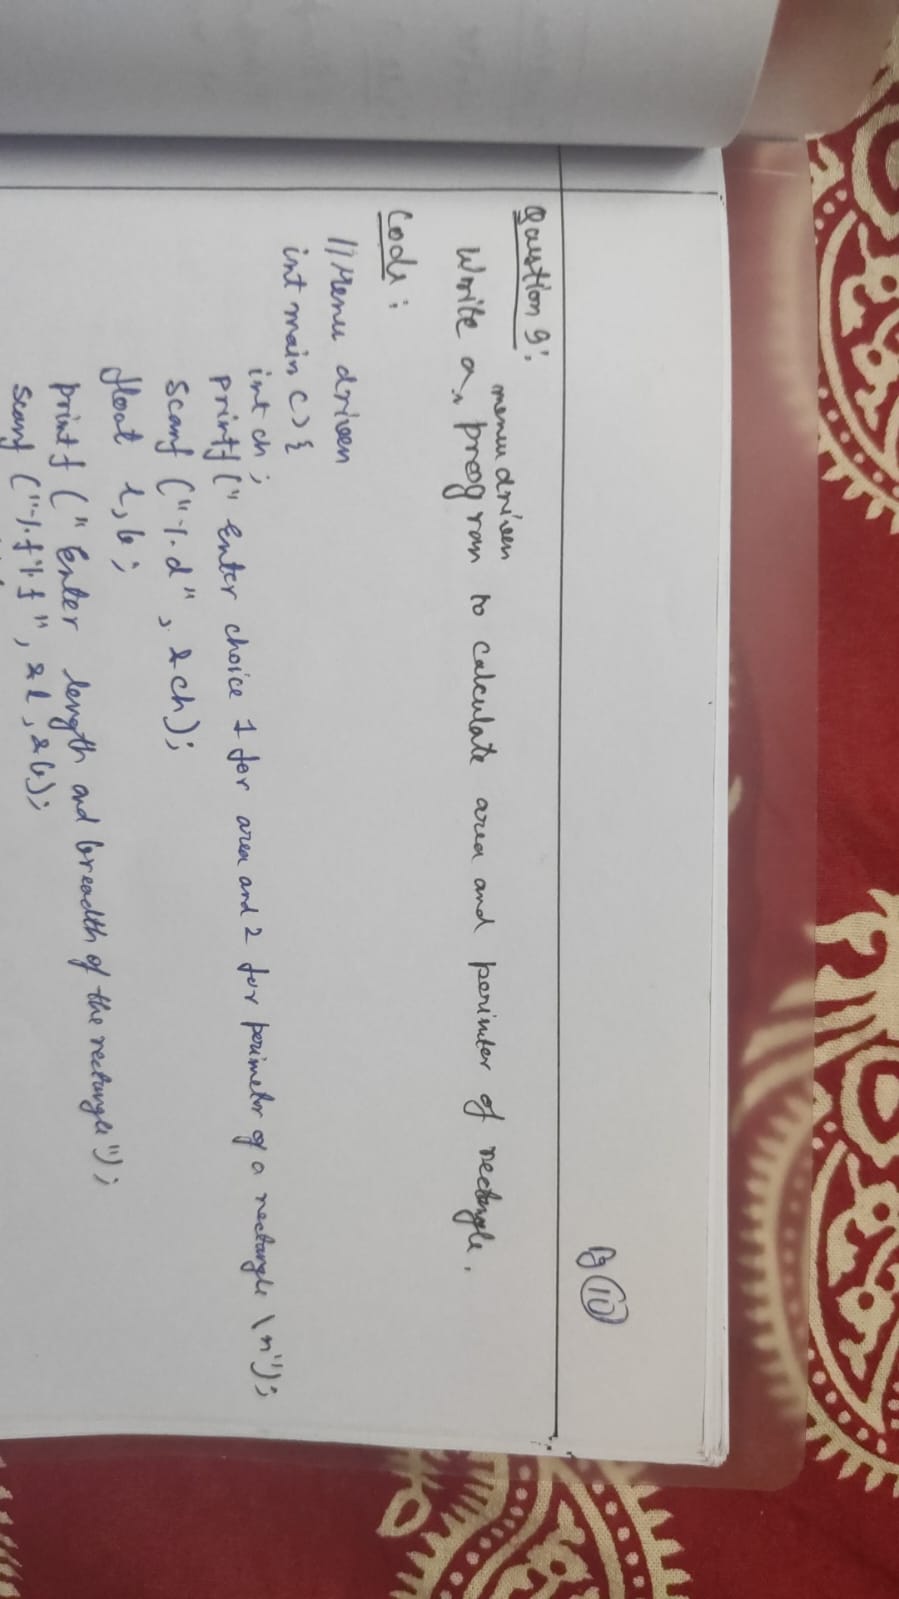 Pg 10
Question 9:
Write a menu driven program to calculate area and perimter of rectangle.
Code:
// Menu driven
int main () {
int ch;
printf (" Enter choice 1 for area and 2 for perimeter of a rectangle \n");
scanf ("%d", &ch);
float l, b;
printf (" Enter length and breadth of the rectangle");
scanf ("%f%f", &l, &b);